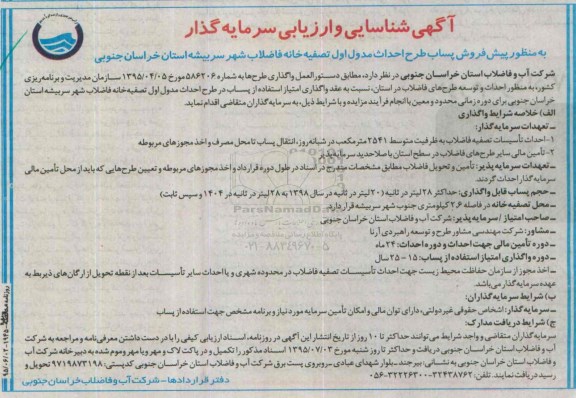 آگهی شناسایی و ارزیابی سرمایه گذار
به منظور پیش فروش پساب طرح احداث مدول اول تصفیه خانه فاضلاب شهر سربیشه استان خراسان جنوبی
شرکت آب و فاضلاب استان خراسان جنوبی در نظر دارد، مطابق دستورالعمل واگذاری طرح‌ها به شماره ۵۸۶۲۰۶ مورخ ۱۳۹۵/۰۴/۰۵ سازمان مدیریت و برنامه‌ریزی
کشور، به منظور احداث و توسعه طرح‌های فاضلاب در استان، نسبت به عقد واگذاری امتیاز استفاده از پساب در طرح احداث مدول اول تصفیه‌خانه فاضلاب شهر سربیشه استان
خراسان جنوبی برای دوره زمانی محدود و معین با انجام فرآیند مزایده و با شرایط ذیل، به سرمایه‌گذاران متقاضی اقدام نماید.
الف) خلاصه شرایط واگذاری
ـ تعهدات سرمایه‌گذار:
۱- احداث تأسیسات تصفیه فاضلاب به ظرفیت متوسط ۲۵۴۱ مترمکعب در شبانه‌روز، انتقال پساب تا محل مصرف و اخذ مجوزهای مربوطه
۲- تأمین مالی سایر طرح‌های فاضلاب در سطح استان با صلاحدید سرمایه‌پذیر
ـ تعهدات سرمایه پذیر: تأمین و تحویل فاضلاب مطابق مشخصات مندرج در اسناد در طول دوره قرارداد و اخذ مجوزهای مربوطه و تعیین طرح‌هایی که باید از محل تأمین مالی
سرمایه‌گذار احداث گردند
ـ حجم پساب قابل واگذاری: حداکثر ۲۸ لیتر در ثانیه (۲۰ لیتر در ثانیه در سال ۱۳۹۸ به ۲۸ لیتر در ثانیه در ۱۴۰۴ و سپس ثابت)
ـ محل تصفیه‌خانه در فاصله ۲٫۶ کیلومتری جنوب شهر سربیشه قرار دارد.
ـ صاحب امتیاز / سرمایه‌پذیر: شرکت آب و فاضلاب استان خراسان جنوبی
ـ مشاور: شرکت مهندسی مشاور طرح و توسعه راهبردی آرنا
ـ دوره تأمین مالی جهت احداث و دوره احداث: ۲۴ ماه
ـ دوره واگذاری امتیاز استفاده از پساب: ۱۵ - ۲۵ سال
ـ اخذ مجوز از سازمان حفاظت محیط زیست جهت احداث تأسیسات تصفیه فاضلاب در محدوده شهری و یا احداث سایر تأسیسات بعد از نقطه تحویل از ارگان‌های ذیربط به
عهده سرمایه گذار می‌باشد.
ب) شرایط سرمایه‌گذاران:
ـ سرمایه‌گذار: اشخاص حقوقی غیر دولتی، دارای توان مالی و امکان تأمین سرمایه مورد نیاز و برنامه مشخص جهت استفاده از پساب
ج) شرایط دریافت مدارک:
سرمایه‌گذاران متقاضی و واجد شرایط می‌توانند حداکثر تا ۱۰ روز از تاریخ انتشار این آگهی در روزنامه، اسناد ارزیابی کیفی را با در دست داشتن معرفی‌نامه و مراجعه به شرکت
آب و فاضلاب استان خراسان جنوبی دریافت و حداکثر تا روز شنبه مورخ ۱۳۹۵/۰۷/۰۳ اسناد مذکور را تکمیل و در پاکت لاک و مهر و یا مهر و موم شده به دبیرخانه شرکت آب
و فاضلاب استان خراسان جنوبی به نشانی: بیرجند ـ بلوار شهدای عبادی ـ روبروی پست برق شرکت آب و فاضلاب استان خراسان جنوبی کدپستی: ۹۷۱۹۸۷۳۱۹۸ تحویل و
رسید دریافت نمایند. تلفن: ۳۲۴۳۸۷۶۲-۳۲۲۲۶۳۰۰-۰۵۶
دفتر قراردادها - شرکت آب و فاضلاب خراسان جنوبی
ParsNamadData
۰۲۱-۸۸۳۴۹۶۷۰-۵